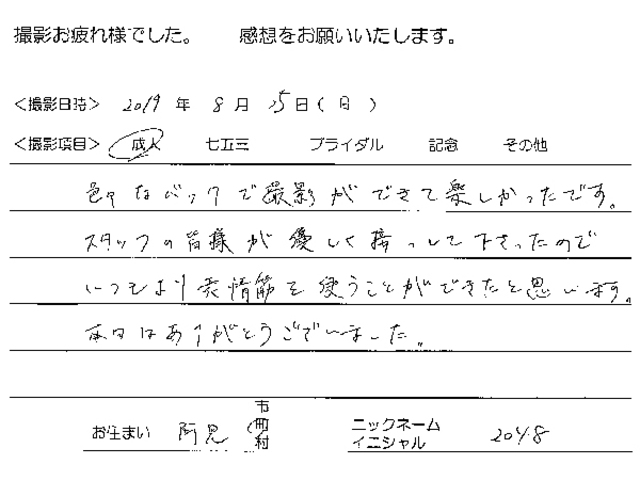 撮影お疲れ様でした。 感想をお願いいたします。
<撮影日時> 2019 年 8 月 25日(日)
<撮影項目> 成人 七五三 ブライダル 記念 その他
色々なバックで撮影ができて楽しかったです。
スタッフの皆様が優しく接っして下さったので
いつもより表情筋を使うことができたと思います。
本日はありがとうございました。
お住まい 阿見 市町村 ニックネーム イニシャル 2048